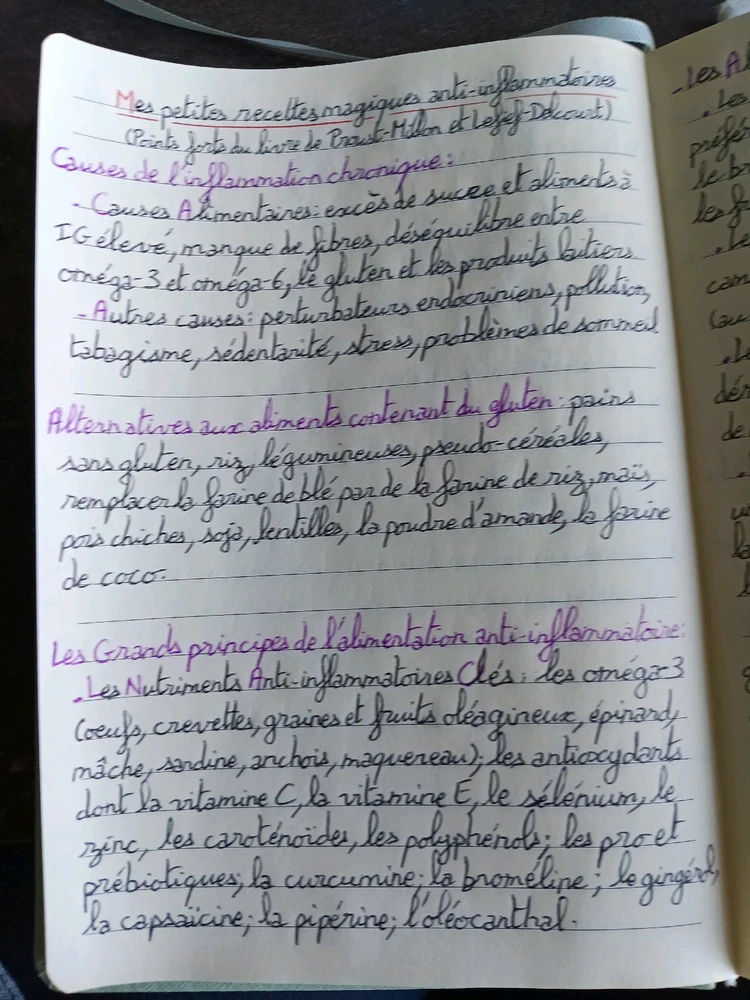 Mes petites recettes magiques anti-inflammatoires
(Points forts du livre de Proust-Millon et Lefief-Delcourt)
Causes de l'inflammation chronique :
- Causes Alimentaires : excès de sucre et aliments à
IG élevé, manque de fibres, déséquilibre entre
oméga-3 et oméga-6, le gluten et les produits laitiers.
- Autres causes : perturbateurs endocriniens, pollution,
tabagisme, sédentarité, stress, problèmes de sommeil.
Alternatives aux aliments contenant du gluten : pains
sans gluten, riz, légumineuses, pseudo-céréales,
remplacer la farine de blé par de la farine de riz, maïs,
pois chiches, soja, lentilles, la poudre d'amande, la farine
de coco.
Les Grands principes de l'alimentation anti-inflammatoire :
. Les Nutriments Anti-inflammatoires Clés : les oméga-3
(oeufs, crevettes, graines et fruits oléagineux, épinard,
mâche, sardine, anchois, maquereau) ; les antioxydants
dont la vitamine C, la vitamine E, le sélénium, le
zinc, les caroténoïdes, les polyphénols ; les pro et
prébiotiques ; la curcumine ; la broméline ; le gingérol,
la capsaïcine ; la pipérine ; l'oléocanthal.